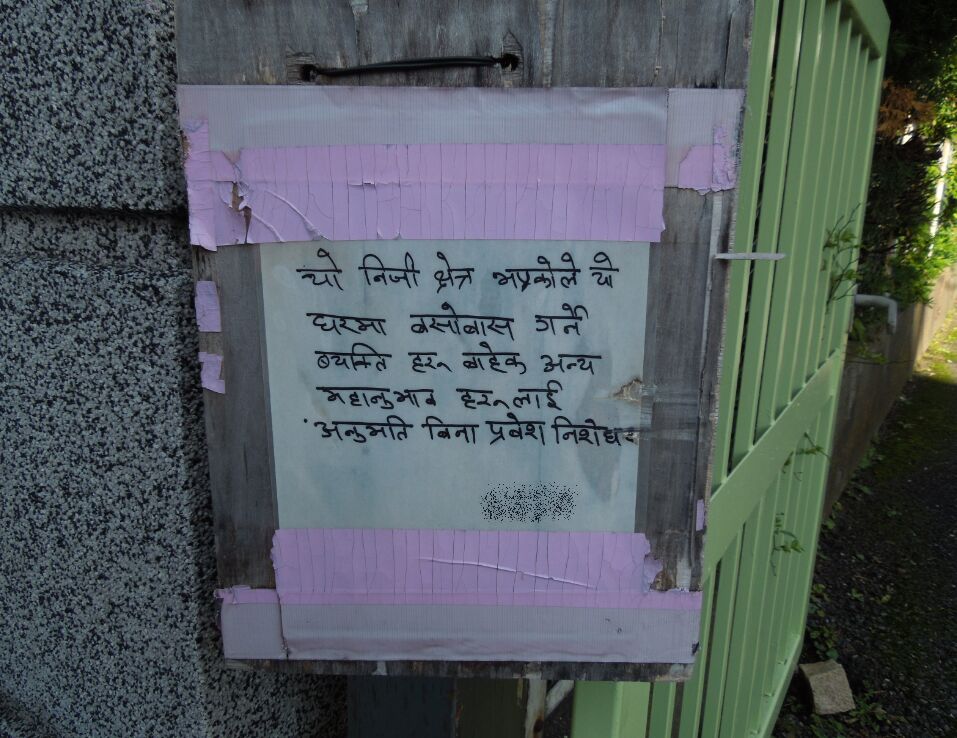 यो निजी क्षेत्र भएकोले यो
घरमा बसोबास गर्ने
ब्यक्ति हरू बाहेक अन्य
महानुभाब हरूलाई
अनुमति बिना प्रवेश निशेध